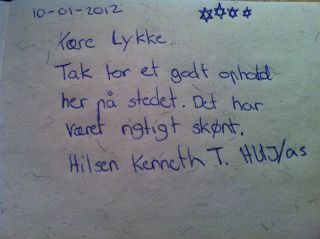 10-01-2012
Kære Lykke.
Tak for et godt ophold
her på stedet. Det har
været rigtigt skønt.
Hilsen Kenneth T.